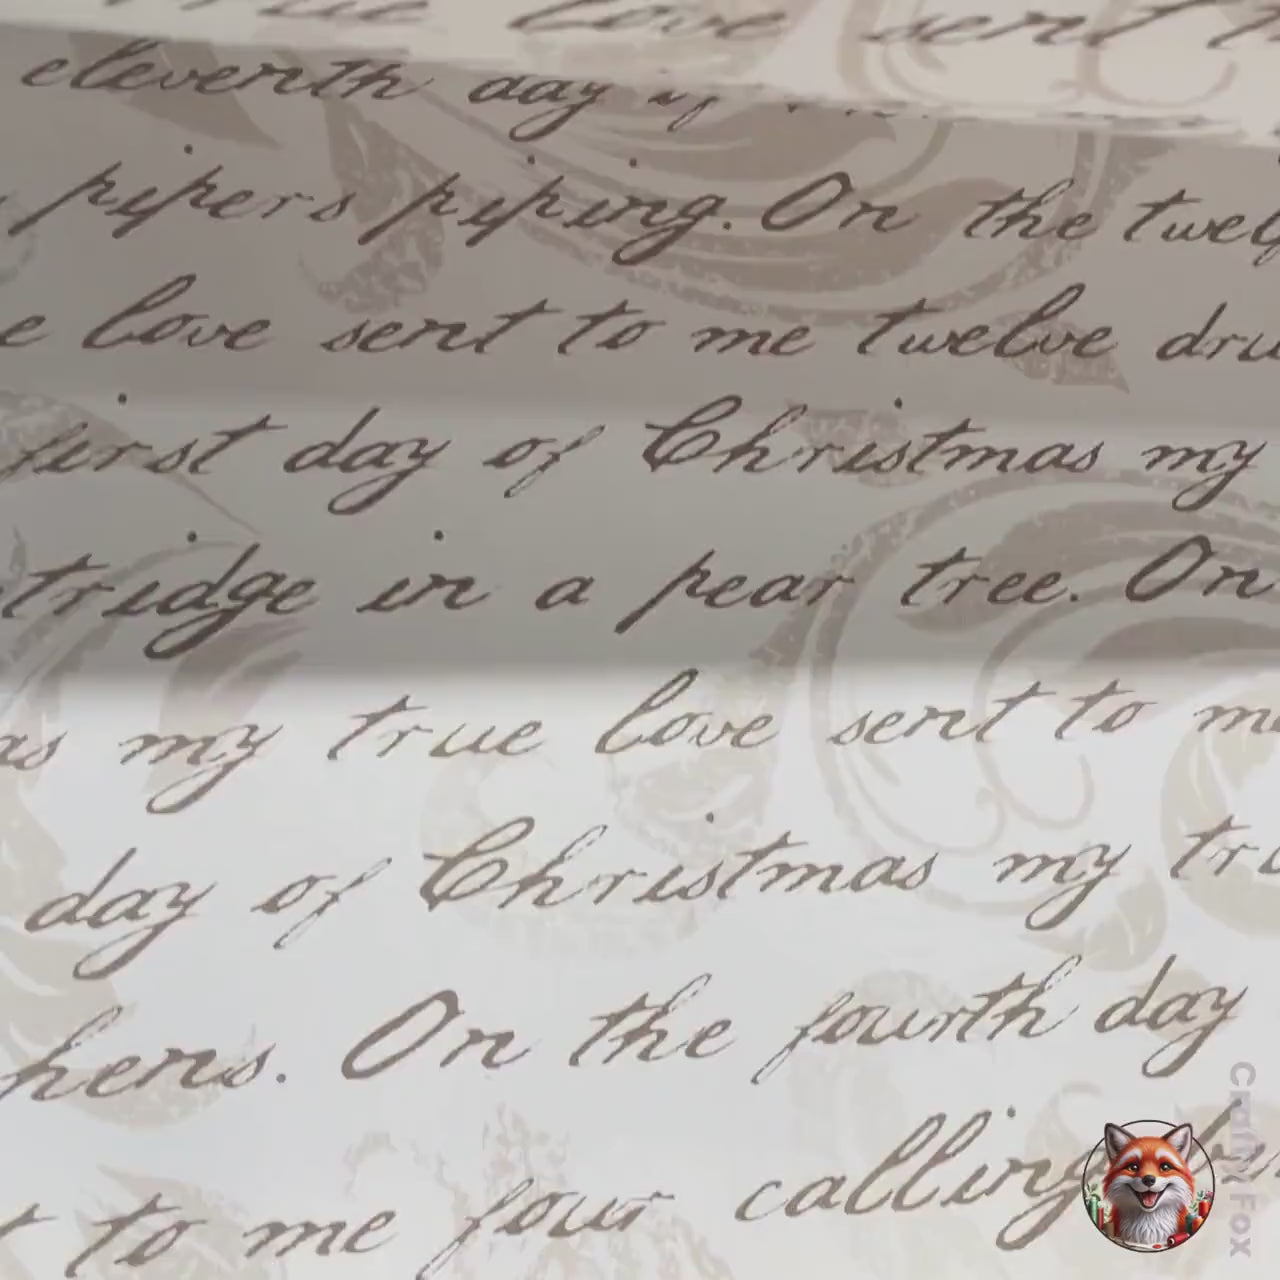 true love sent t
eleventh day of
pipers piping. On the twel
e love sent to me twelve dru
first day of Christmas my
tridge in a pear tree. On
as my true love sent to me
day of Christmas my tru
hens. On the fourth day
t to me four calling bi
Crafty Fox